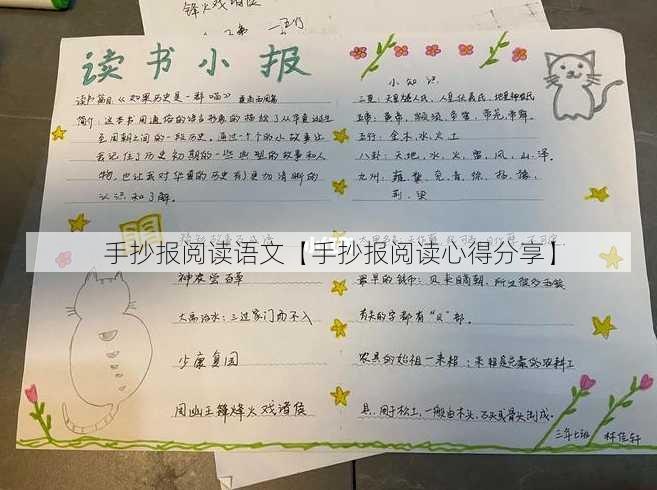 烽火戏诸侯
读书小报
读书篇目《如果历史是一群喵》
简介：这本书用通俗的语言形象的描绘了从华夏诞生
至周朝之间的一段历史，通过一个个的小故事让
我记住了历史初期的一些典型的故事和人
物，也让我对华夏的历史有了更加清晰的
认识和了解。
小知识
五行：金木水火土
八卦：天地，水，火，雷，风，山，泽。
九州：
荆，梁
手抄报阅读语文【手抄报阅读心得分享】
神农尝百草
大禹治水：三过家门而不入
少康复国
周幽王烽火戏诸侯
最早的钱币：贝
有关的字都有“贝”部。
农具的始祖—耒耜：
具，用于松土，一般由木头，石头或骨头制成。
三年七班 林佳轩